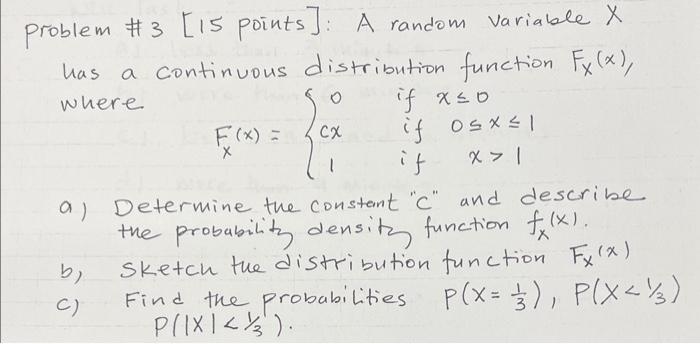 Problem #3 [15 points]: A random variable X
has a continuous distribution function Fx(x),
where
0 if x ≤ 0
Fx(x) = { cx if 0 ≤ x ≤ 1
1 if x > 1
a) Determine the constant "C" and describe
the probability density function fx(x).
b) Sketch the distribution function Fx(x)
c) Find the probabilities P(X = 1/3), P(X < 1/3)
P(|X| < 1/3).